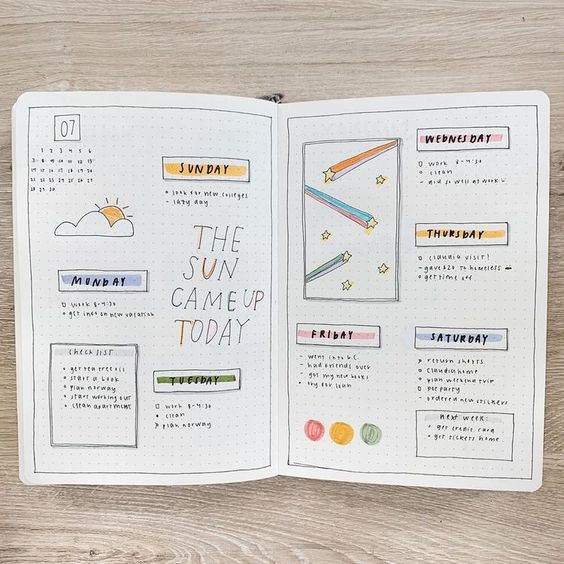 07
1 2 3 4 5 6
SUNDAY
look for new colleges
- lazy day
THE
SUN
CAME UP
TODAY
MONDAY
work 8-4:30
get info on new vacation
checklist
get tea tree oil
start a book
plan norway
start working out
clean apartment
TUESDAY
work 8-4:30
clean
plan norway
WEDNESDAY
work 8-4:30
clean
- did so well at work
THURSDAY
claudia visit!
- gave $20 to homeless
get time off
FRIDAY
- went into
- had friends over
got my new books
try for loan
SATURDAY
return shorts
claudia home
plan weekend trip
pie party
ordered new stickers
next week:
get credit card
get stickers home